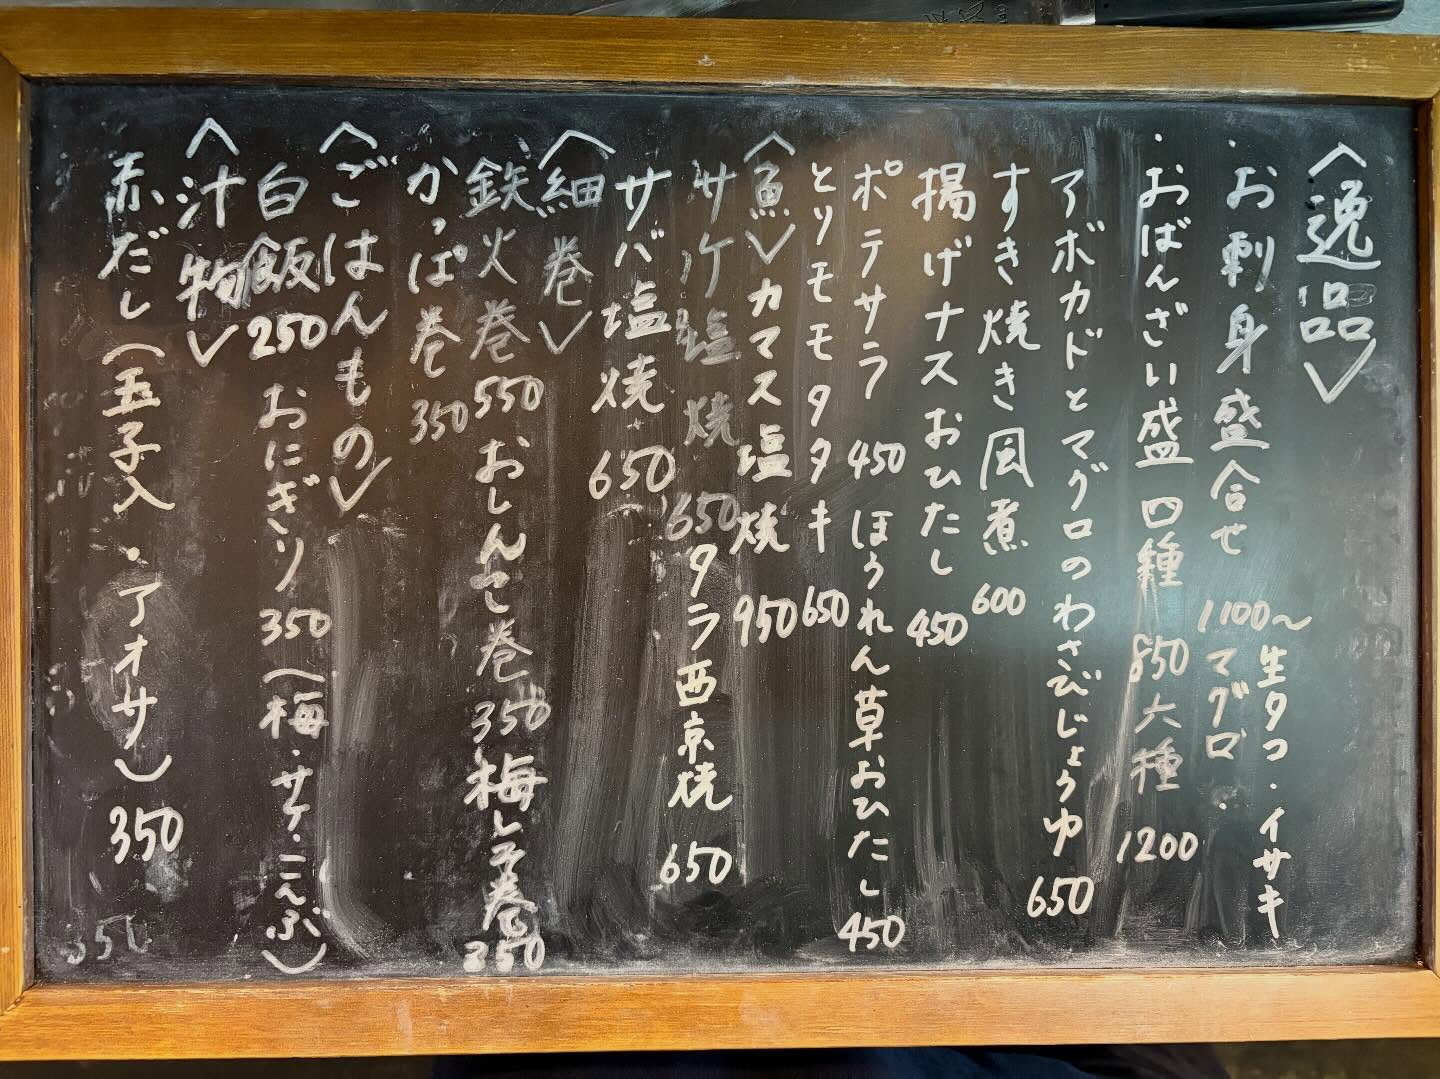 〈逸品〉
・お刺身盛合せ 1100〜 生タコ・イサキ
マグロ・
・おばんざい盛 四種 850 六種 1200
アボカドとマグロのわさびじょうゆ 650
すき焼き風煮 600
揚げナスおひたし 450
ポテサラ 450 ほうれん草おひたし 450
とりモモタタキ 650
〈魚〉カマス塩焼 950
サケ塩焼 650 タラ西京焼 650
サバ塩焼 650
〈細巻〉
鉄火巻 550 おしんこ巻 350 梅しそ巻 350
かっぱ巻 350
〈ごはんもの〉
白飯 250 おにぎり 350 (梅・サケ・こんぶ)
〈汁物〉
赤だし(玉子入・アオサ) 350